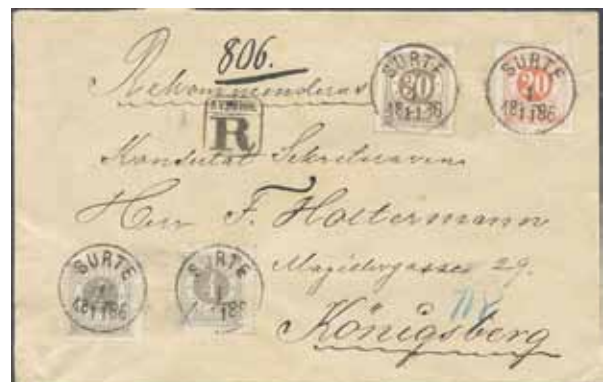 806.
Rekommenderas
R
SURTE
1
18 11 86
SURTE
1
18 11 86
20
Konsulat Sekreteraren
Herr F. Holtermann
Magistergasse 29.
Königsberg
SURTE
1
18 11 86
SURTE
1